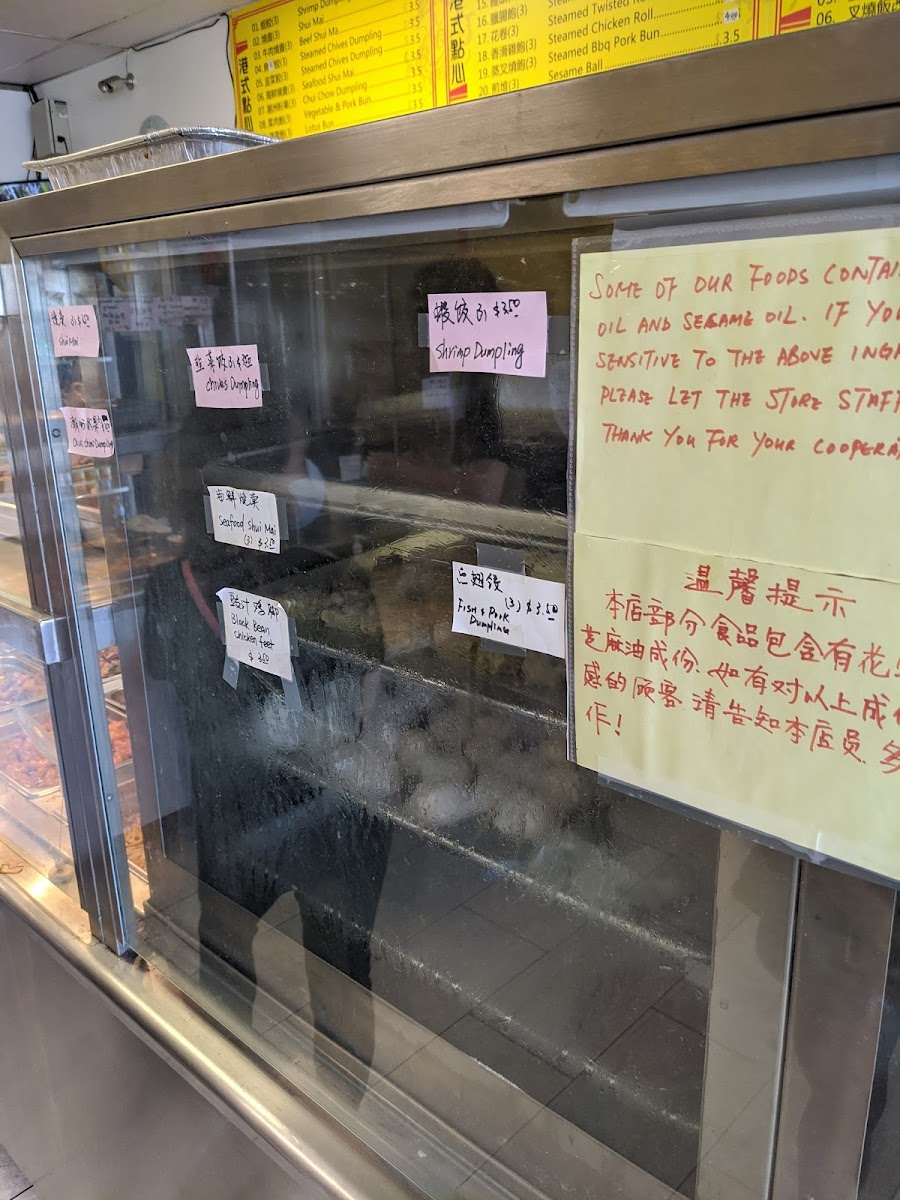 港式點心
01. 蝦餃(3)
02. 燒賣(3)
03. 牛肉燒賣(3)
05. 韭菜餃(3)
06. 海鮮燒賣(3)
07. 潮州粉果(3)
08. 菜肉飽(3)
Shrimp Dumpling
Shui Mai
Beef Shui Mai
Steamed Chives Dumpling
Steamed Chives Dumpling
Seafood Shui Mai
Chui Chow Dumpling
Vegetable & Pork Bun
Lotus Bun
3.5
3.5
3.5
3.5
3.5
港式點心
16. 臘腸飽(3)
17. 花卷(3)
18. 香港雞飽(3)
19. 蒸叉燒飽(3)
20. 煎堆(3)
Steamed Twisted Ro
Steamed Chicken Roll
Steamed Bbq Pork Bun
Sesame Ball
3.5
06. 叉燒飯
Shui Mai
韭菜餃
Chives Dumpling
蝦餃 $3.50
Shrimp Dumpling
Chiu chow Dumpling
海鮮燒賣
Seafood Shui Mai
(3) $3.50
豉汁鳳腳
Black Bean
chicken feet
$3.50
(3) $3.50
FISH & PORK
DUMPLING
SOME OF OUR FOODS CONTAI
OIL AND SESAME OIL. IF YO
SENSITIVE TO THE ABOVE ING
PLEASE LET THE STORE STAF
THANK YOU FOR YOUR COOPERA
温馨提示
本店部分食品包含有花
芝麻油成份、如有对以上成
感的顾客 请告知本店员
作!